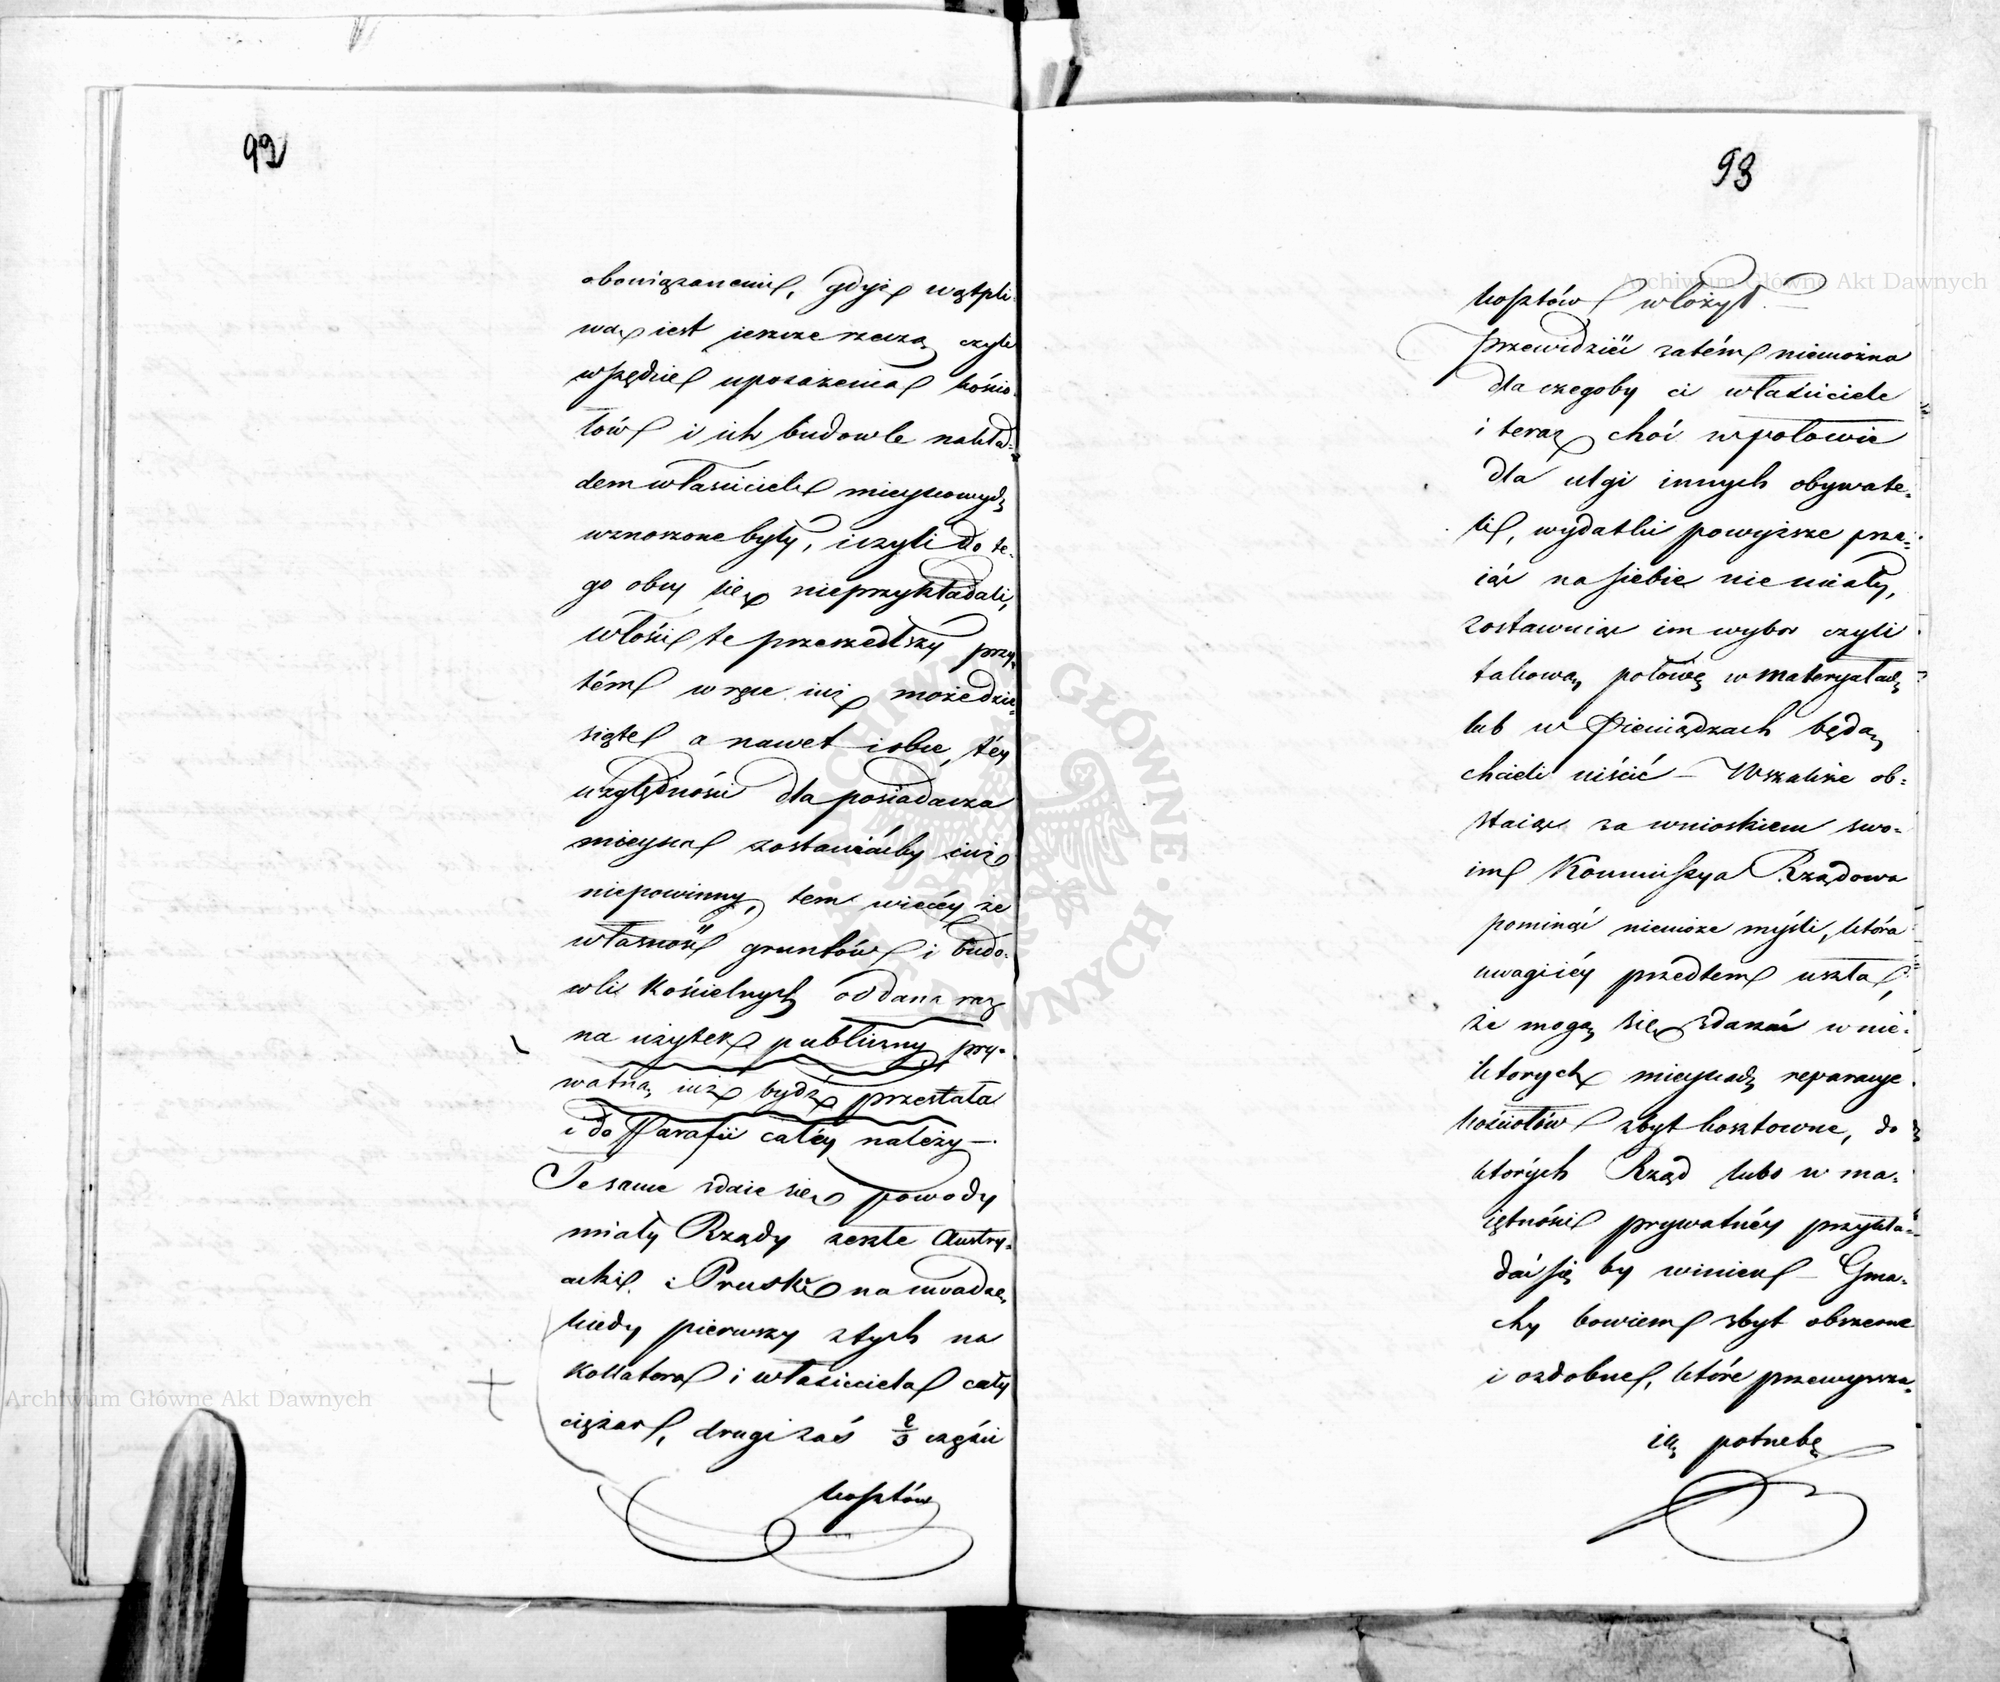 92
obowiązanemi, gdyż wątpli-
wą iest ieszcze rzeczą czyli
wszędzie uposażenia kościo-
łów i ich budowle nakła-
dem właściciela mieyscowych
wznoszone były, iczyli do te-
go obcy się nieprzykładali,
włości te przeszedłszy przy-
tém w ręce iuż może dzie-
siąte a nawet i obce, téy
względności dla posiadacza
mieysca zostawiáćby iuż
niepowinny, tem więcéy że
własność gruntów i budo-
wli Kościelnych oddana raz
na użytek publiczny, pry-
watną iuż bydź przestała
i do Parafii całéy należy –.
Te same zdaie się powody
miały Rządy zeszłe Austry-
acki i Pruski na uwadze,
kiedy pierwszy z tych na
Kollatora i właściciela cały
ciężar, drugi zaś 2/3 części
kosztów
93
kosztów włożył. –
Przewidzieć zatém niemożna
dla czegoby ci właściciele
i teraz choć w połowie
dla ulgi innych obywate-
li, wydatku powyższe prze-
iąć na siebie nie mieli,
zostawuiąc im wybor czyli
takową połowę w materyałach
lub w Pieniądzach będą
chcieli uiścić – Wszakże ob-
staiąc za wnioskiem swo-
im Kommissya Rządowa
pominąć niemoże myśli, która
uwagi iéy przedtem uszła,
że mogą się zdarzać w nie-
których mieyscach reparacye
kościołów zbyt kosztowne, do
których Rząd lubo w ma-
iętności prywatnéy przykła-
dać się by winien – Gma-
chy bowiem zbyt obszerne
i ozdobne, które przewyższa-
ią potrzebę
Archiwum Główne Akt Dawnych
Archiwum Główne Akt Dawnych
ARCHIWUM GŁÓWNE AKT DAWNYCH